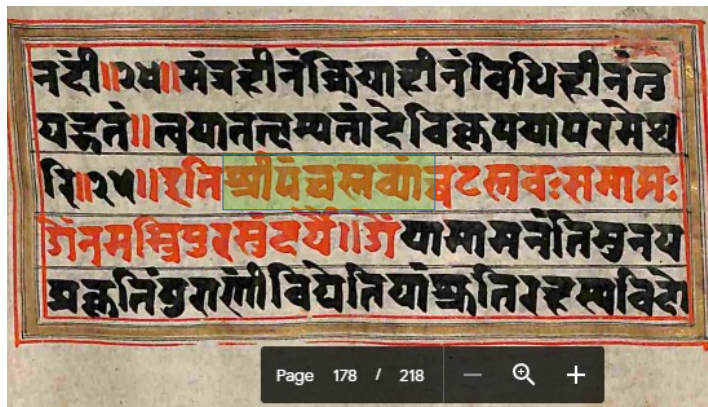 नंदी॥२४॥मंत्रहीनंक्रियाहीनंविधिहीनंतु
यद्गतं॥त्वयातत्क्षम्यतांदेविकृपयापरमेश्व
रि॥२५॥इतिश्रीपंचस्तव्यांघटस्तवःसमाप्तः
ॐनमस्त्रिपुरसुंदर्यै॥ॐयामामनंतिमुनय
प्रकृतिंपुराणींविद्येतियांश्रुतिरहस्यविदो
Page 178 / 218